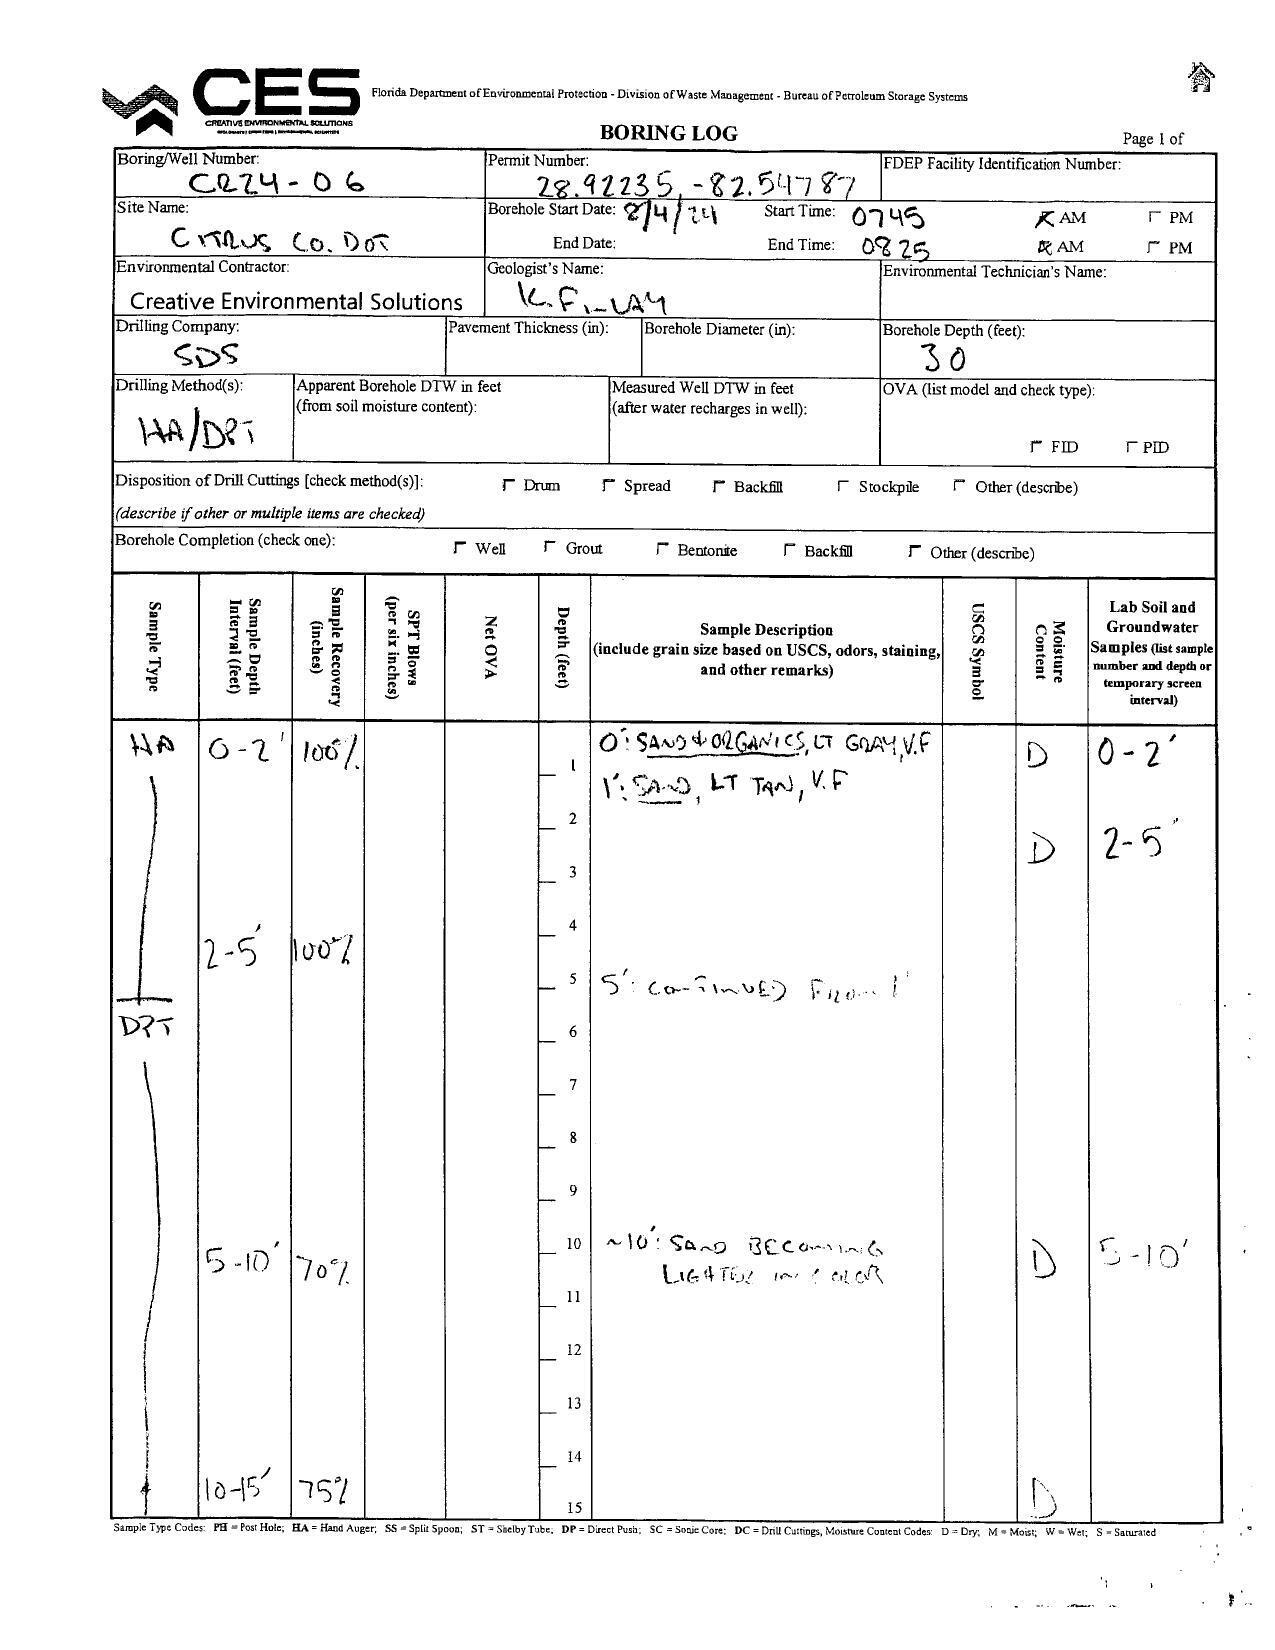 CES
CREATIVE ENVIRONMENTAL SOLUTIONS
Florida Department of Environmental Protection - Division of Waste Management - Bureau of Petroleum Storage Systems
BORING LOG
Page 1 of
Boring/Well Number:
CR24-06
Permit Number:
28.92235, -82.54787
FDEP Facility Identification Number:
Site Name:
CITRUS CO. DOT
Borehole Start Date: 8/4/24 Start Time: 0745 AM PM
End Date: End Time: 0825 AM PM
Environmental Contractor:
Creative Environmental Solutions
Geologist's Name:
K. FINLAY
Environmental Technician's Name:
Drilling Company:
SDS
Pavement Thickness (in):
Borehole Diameter (in):
Borehole Depth (feet):
30
Drilling Method(s):
HA/DPT
Apparent Borehole DTW in feet
(from soil moisture content):
Measured Well DTW in feet
(after water recharges in well):
OVA (list model and check type):
FID PID
Disposition of Drill Cuttings [check method(s)]: Drum Spread Backfill Stockpile Other (describe)
(describe if other or multiple items are checked)
Borehole Completion (check one): Well Grout Bentonite Backfill Other (describe)
Sample Type
Sample Depth
Interval (feet)
Sample Recovery
(inches)
SPT Blows
(per six inches)
Net OVA
Depth (feet)
Sample Description
(include grain size based on USCS, odors, staining,
and other remarks)
USCS Symbol
Moisture
Content
Lab Soil and
Groundwater
Samples (list sample
number and depth or
temporary screen
interval)
HA 0-2' 100% 0': SAND & ORGANICS, LT GRAY, V.F D 0-2'
1 1': SAND, LT TAN, V.F
2 D 2-5'
3
4
2-5' 100%
5 5': CONTINUED FROM 1'
DPT 6
7
8
9
5-10' 70% 10 ~10': SAND BECOMING D 5-10'
LIGHTER IN COLOR
11
12
13
14
10-15' 75% D
15
Sample Type Codes: PH = Post Hole; HA = Hand Auger; SS = Split Spoon; ST = Shelby Tube; DP = Direct Push; SC = Sonic Core; DC = Drill Cuttings, Moisture Content Codes: D = Dry; M = Moist; W = Wet; S = Saturated